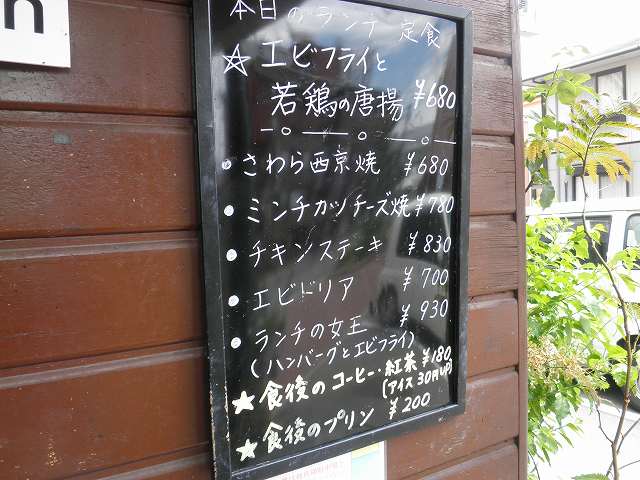 n
本日のランチ 定食
☆エビフライと
若鶏の唐揚 ¥680
・さわら西京焼 ¥680
・ミンチカツチーズ焼 ¥780
・チキンステーキ ¥830
・エビドリア ¥700
・ランチの女王 ¥930
(ハンバーグとエビフライ)
★食後のコーヒー・紅茶 ¥180
(アイス30円UP)
★食後のプリン ¥200